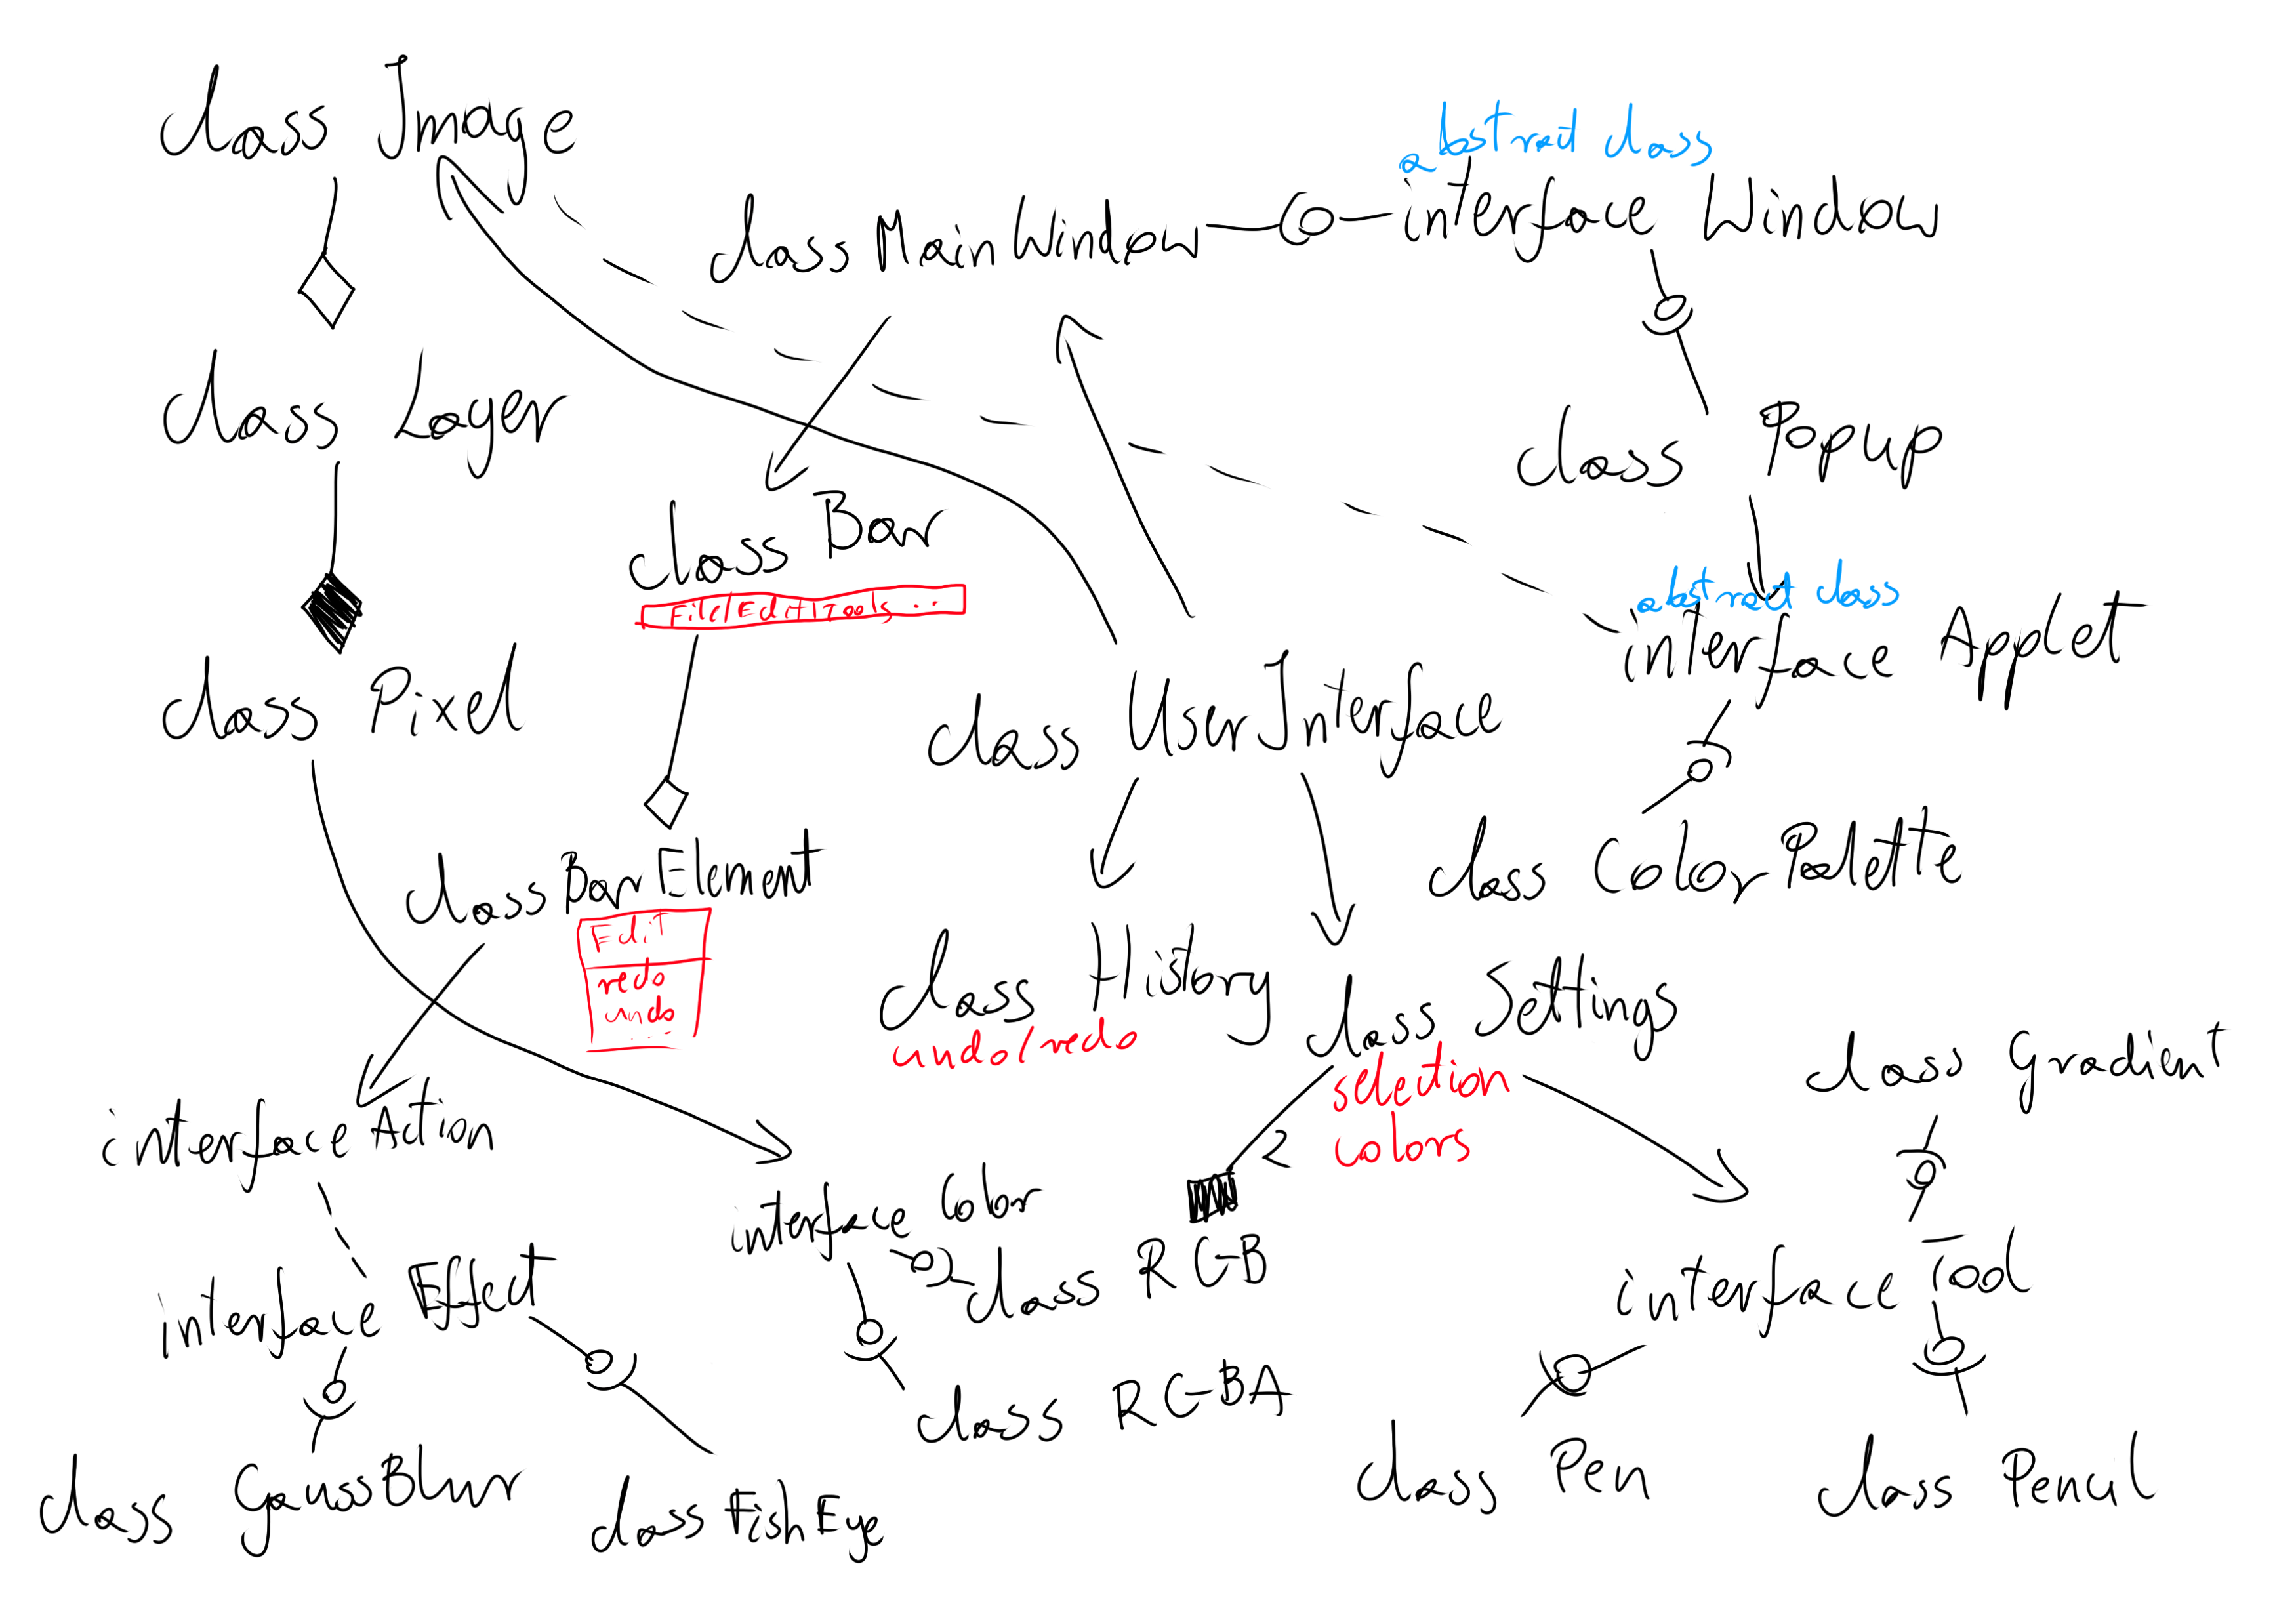 class Image
abstract class
class MainWindow
interface Window
class Layer
class Popup
class Bar
File/Edit/Tools ..
abstract class
interface Applet
class Pixel
class UserInterface
class ColorPalette
class BarElement
Edit
redo
undo
...
class History
undo/redo
class Settings
selection
colors
class Gradient
interface Action
2
interface Color
class RGB
interface Tool
interface Effect
class RGBA
class GaussBlur
class FishEye
class Pen
class Pencil